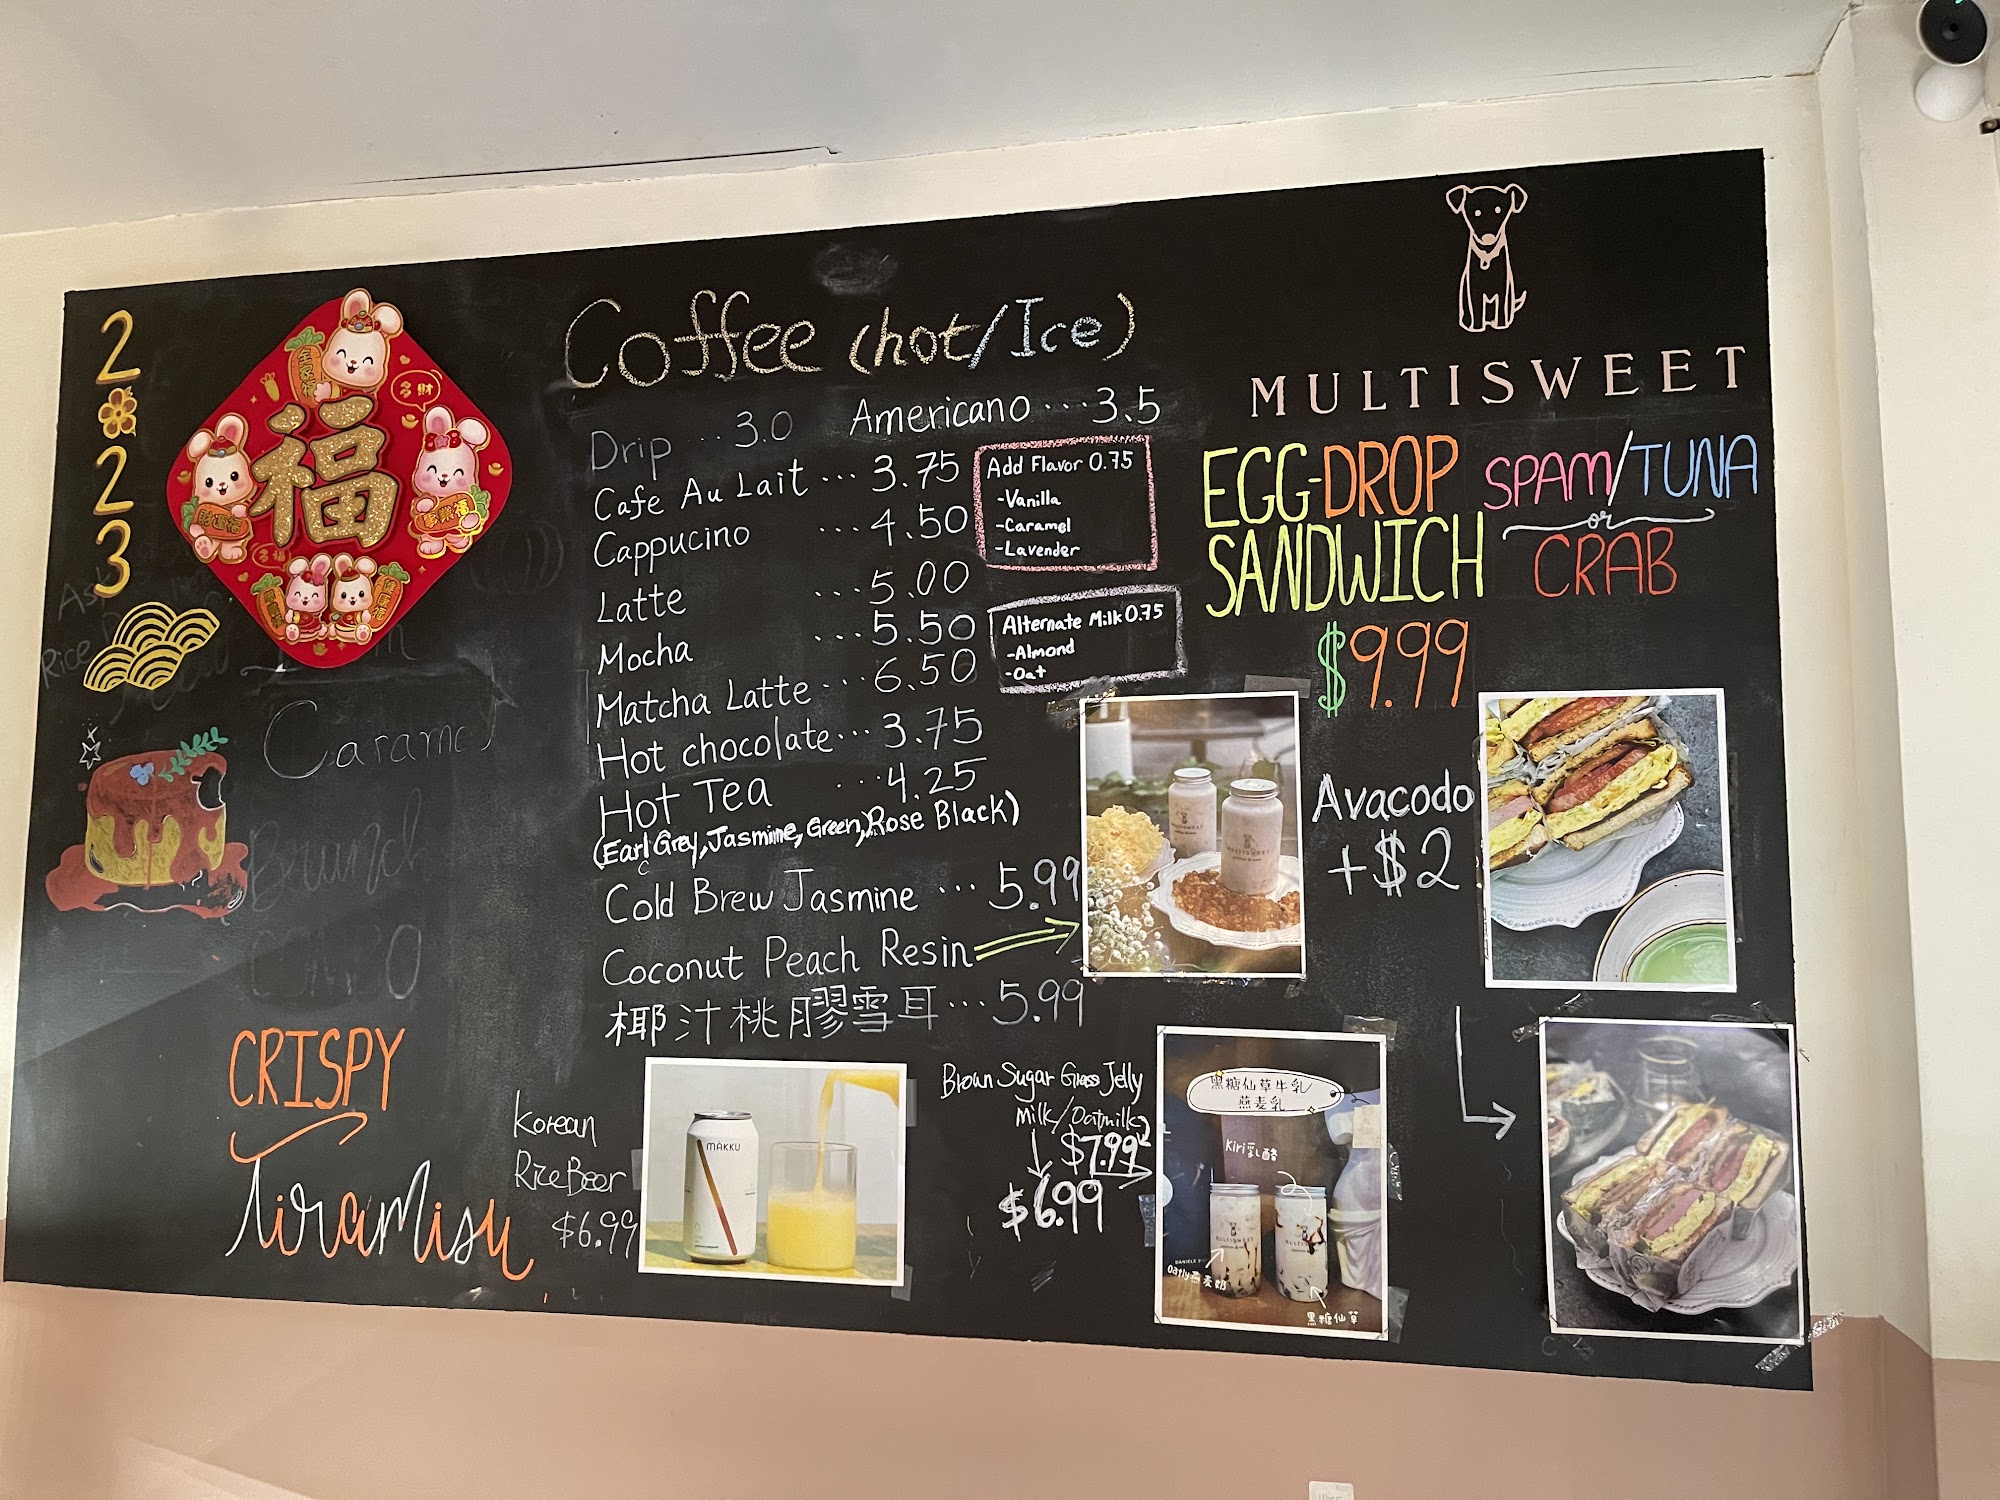 2
2
3
福
多財
財運福
事業福
Caramel
Brunch
CRISPY
Tiramisu
Coffee (hot/Ice)
Drip ... 3.0 Americano ... 3.5
Cafe Au Lait ... 3.75
Cappucino ... 4.50
Latte ... 5.00
Mocha ... 5.50
Matcha Latte ... 6.50
Hot chocolate ... 3.75
Hot Tea ... 4.25
(Earl Grey, Jasmine, Green, Rose Black)
Cold Brew Jasmine ... 5.99
Coconut Peach Resin
椰汁桃膠雪耳 ... 5.99
Add Flavor 0.75
-Vanilla
-Caramel
-Lavender
Alternate Milk 0.75
-Almond
-Oat
Korean
Rice Beer
$6.99
MÀKKU
Brown Sugar Grass Jelly
Milk/Oatmilk
$7.99
$6.99
黑糖仙草牛乳/
燕麦乳
Kiri乳酪
MULTISWEET
Oatly燕麦奶
黑糖仙草
MULTISWEET
EGG-DROP
SANDWICH
SPAM/TUNA
or
CRAB
$9.99
Avacodo
+$2
MULTISWEET